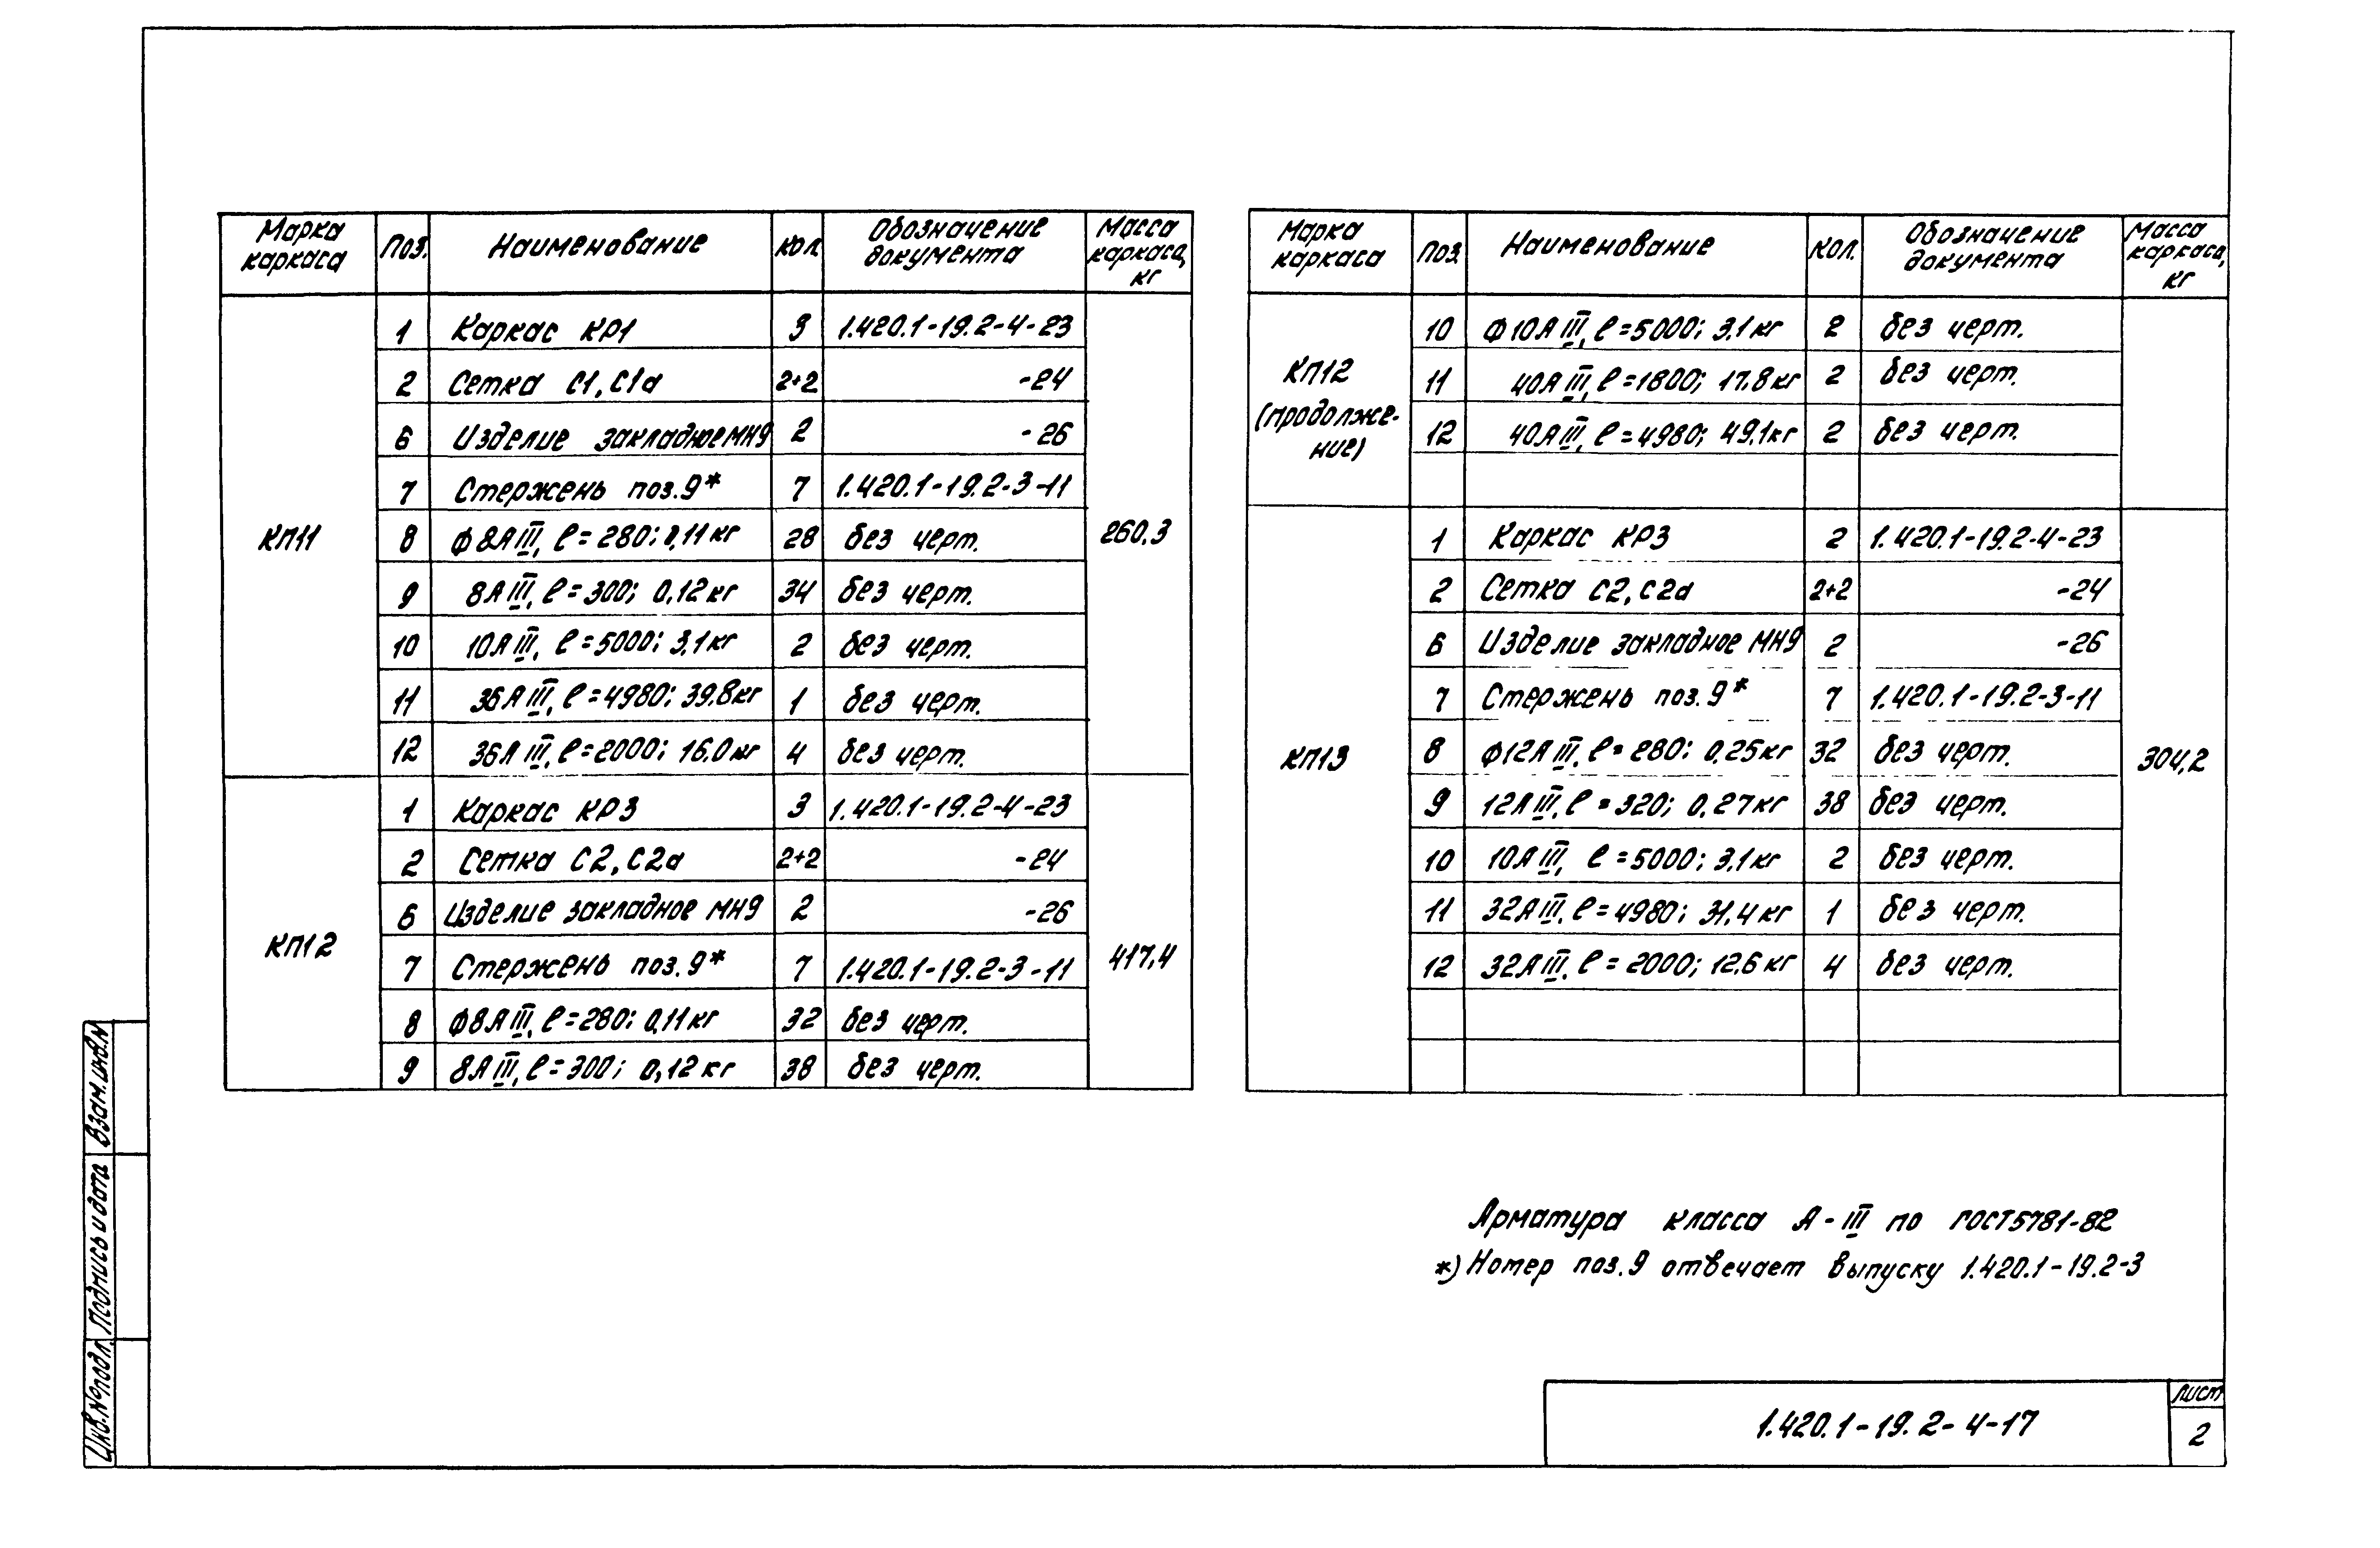 Марка каркаса Поз. Наименование Кол. Обозначение документа Масса каркаса, кг
КП11
1 Каркас КР1 3 1.420.1-19.2-4-23
2 Сетка С1, С1а 2+2 -24
6 Изделие закладное МН9 2 -26
7 Стержень поз.9* 7 1.420.1-19.2-3-11
8 Ф8АIII, ℓ=280; 0,11кг 28 без черт.
260,3
9 8АIII, ℓ=300; 0,12кг 34 без черт.
10 10АIII, ℓ=5000; 3,1кг 2 без черт.
11 36АIII, ℓ=4980; 39.8кг 1 без черт.
12 36АIII, ℓ=2000; 16.0кг 4 без черт.
КП12
1 Каркас КР3 3 1.420.1-19.2-4-23
2 Сетка С2, С2а 2+2 -24
6 Изделие закладное МН9 2 -26
7 Стержень поз.9* 7 1.420.1-19.2-3-11
417,4
8 Ф8АIII, ℓ=280; 0,11кг 32 без черт.
9 8АIII, ℓ=300; 0,12кг 38 без черт.
Марка каркаса Поз. Наименование Кол. Обозначение документа Масса каркаса, кг
КП12
(продолже-
ние)
10 Ф10АIII, ℓ=5000; 3,1кг 2 без черт.
11 40АIII, ℓ=1800; 17.8кг 2 без черт.
12 40АIII, ℓ=4980; 49.1кг 2 без черт.
КП13
1 Каркас КР3 2 1.420.1-19.2-4-23
2 Сетка С2, С2а 2+2 -24
6 Изделие закладное МН9 2 -26
7 Стержень поз.9* 7 1.420.1-19.2-3-11
8 Ф12АIII, ℓ=280; 0,25кг 32 без черт.
304,2
9 12АIII, ℓ=320; 0,27кг 38 без черт.
10 10АIII, ℓ=5000; 3,1кг 2 без черт.
11 32АIII, ℓ=4980; 31,4кг 1 без черт.
12 32АIII, ℓ=2000; 12.6кг 4 без черт.
Арматура класса А-III по ГОСТ5781-82
*) Номер поз.9 отвечает выпуску 1.420.1-19.2-3
Взам.инв.N
Подпись и дата
Инв.№подл.
1.420.1-19.2-4-17
лист
2